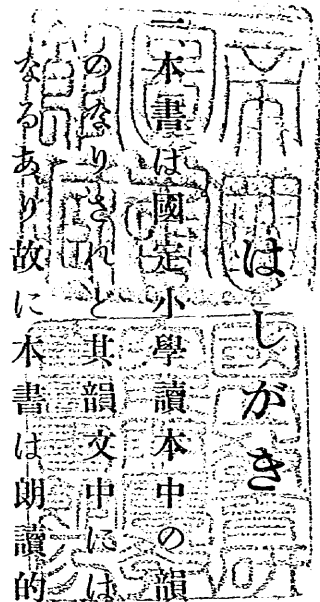 はしがき
一、本書は國定小學讀本中の韻
のなりされど其韻文中には
なるあり故に本書は朗讀的